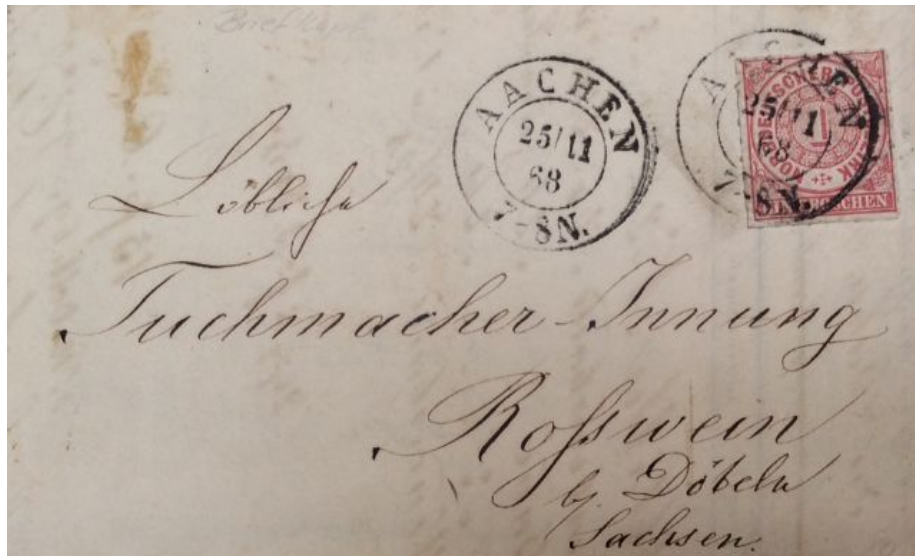 Briefkopf
AACHEN
25/11
68
7-8N.
AACHEN
25/11
68
7-8N.
NORDDEUTSCHER POSTBEZIRK
1
EIN GROSCHEN
Löbliche
Tuchmacher-Innung
Roſswein
b/ Döbeln
Sachsen.